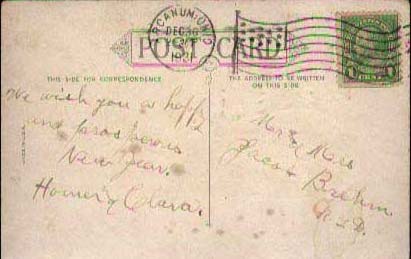 ARCANUM, OHIO
DEC 30
POST CARD
THIS SIDE FOR CORRESPONDENCE
THE ADDRESS TO BE WRITTEN
ON THIS SIDE
We wish you a happy
and prosperous
New Year.
Homer & Clara.
Mr & Mrs
Brehm